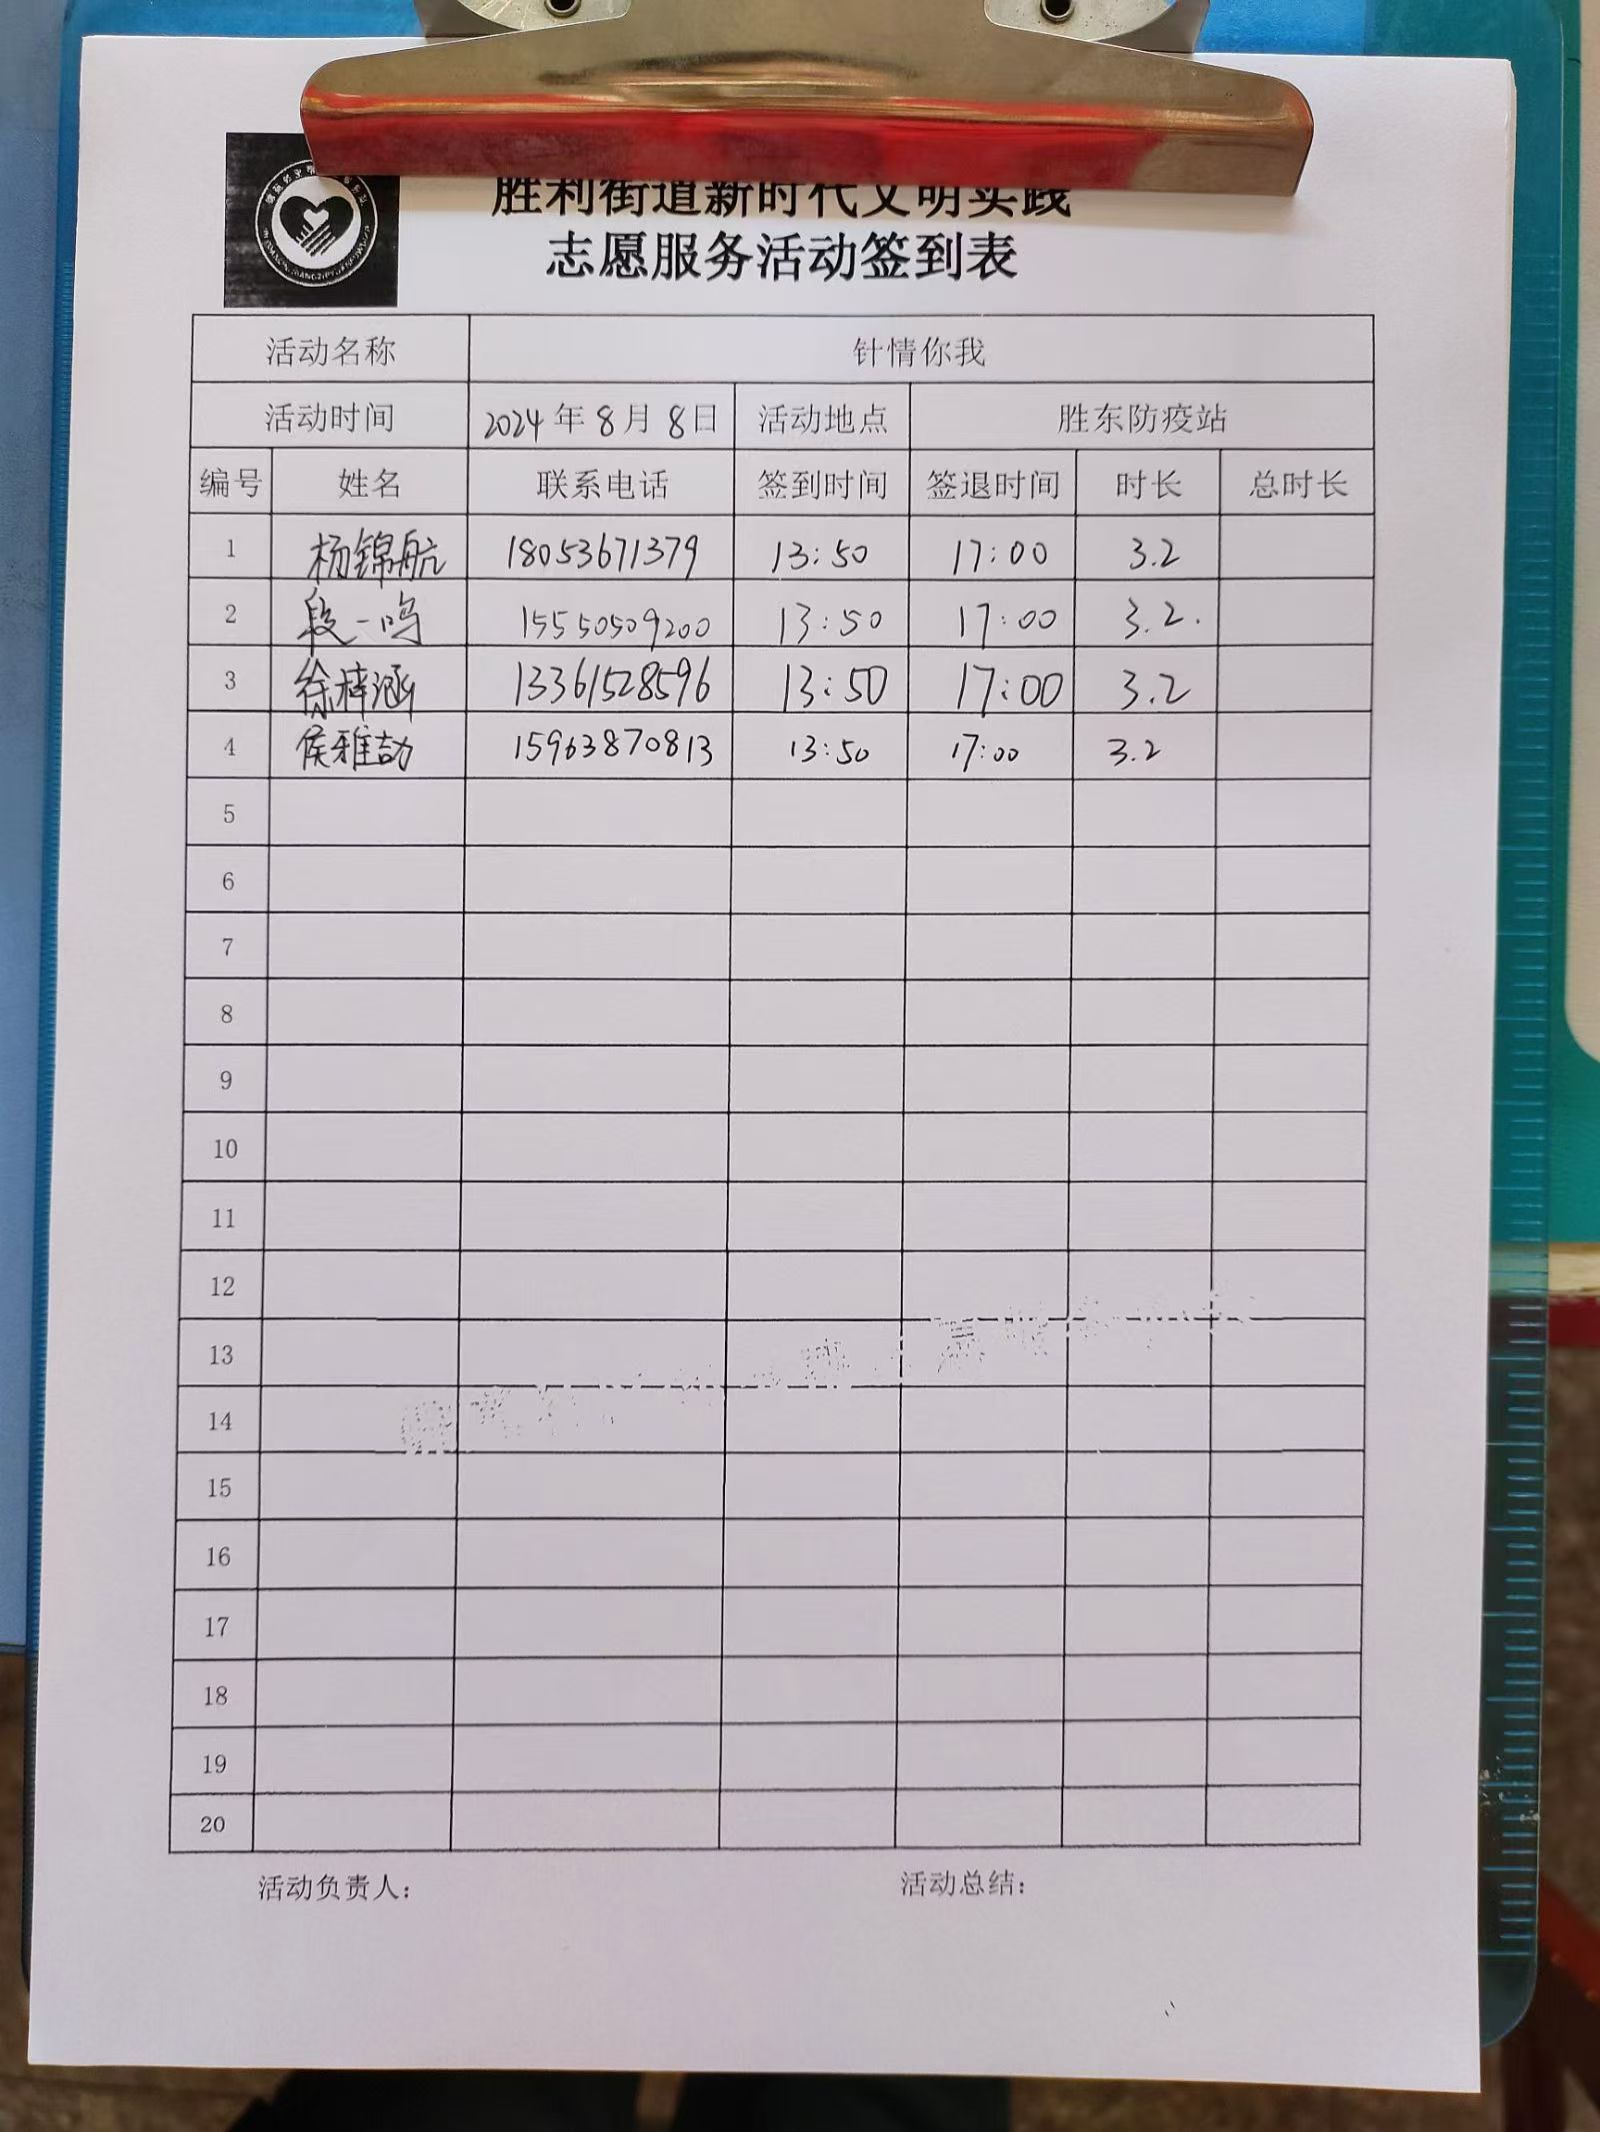 胜利街道新时代文明实践
志愿服务活动签到表
活动名称 针情你我
活动时间 2024年8月8日 活动地点 胜东防疫站
编号 姓名 联系电话 签到时间 签退时间 时长 总时长
1 杨锦航 18053671379 13:50 17:00 3.2
2 段一鸣 15550509200 13:50 17:00 3.2.
3 徐梓涵 13361528596 13:50 17:00 3.2
4 侯雅喆 15963870813 13:50 17:00 3.2
5
6
7
8
9
10
11
12
13
14
15
16
17
18
19
20
活动负责人: 活动总结: